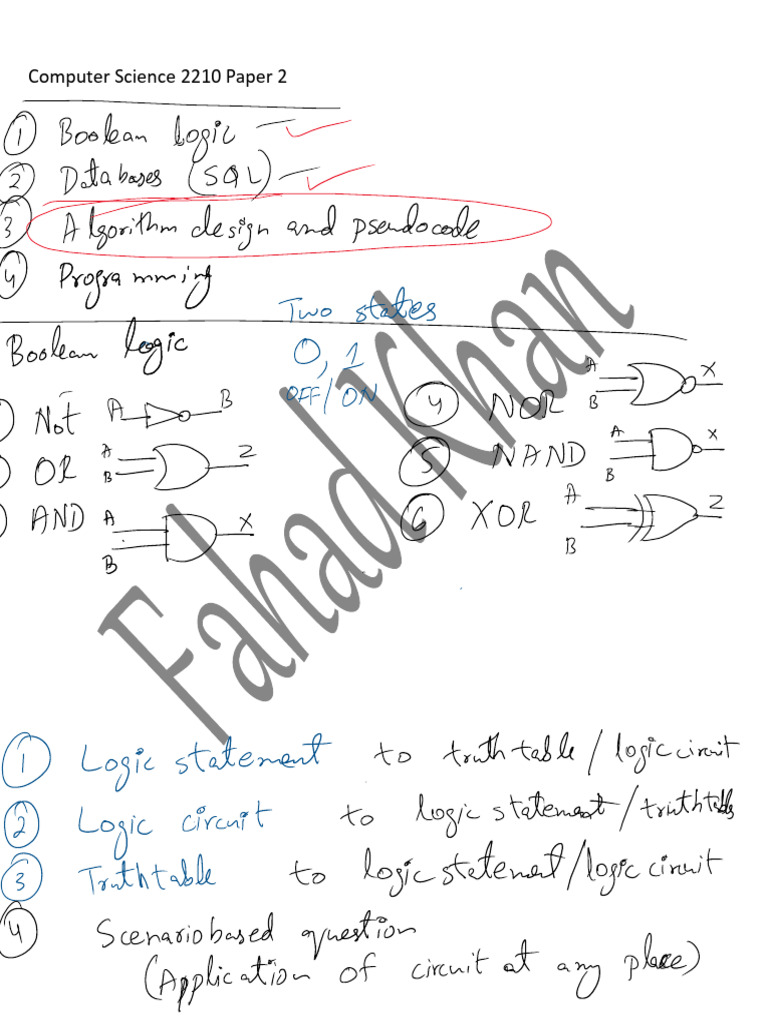 Computer Science 2210 Paper 2
① Boolean logic
② Databases (SQL)
③ Algorithm design and pseudocode
④ Programming
Two states
Boolean logic
0, 1
OFF/ON
Not A B
OR A B Z
AND A B X
④ NOR A B X
⑤ NAND A B X
⑥ XOR A B Z
Fahad Khan
① Logic statement to truth table / logic circuit
② Logic circuit to logic statement / truthtable
③ Truthtable to logic statement / logic circuit
④ Scenario based question
(Application of circuit at any place)